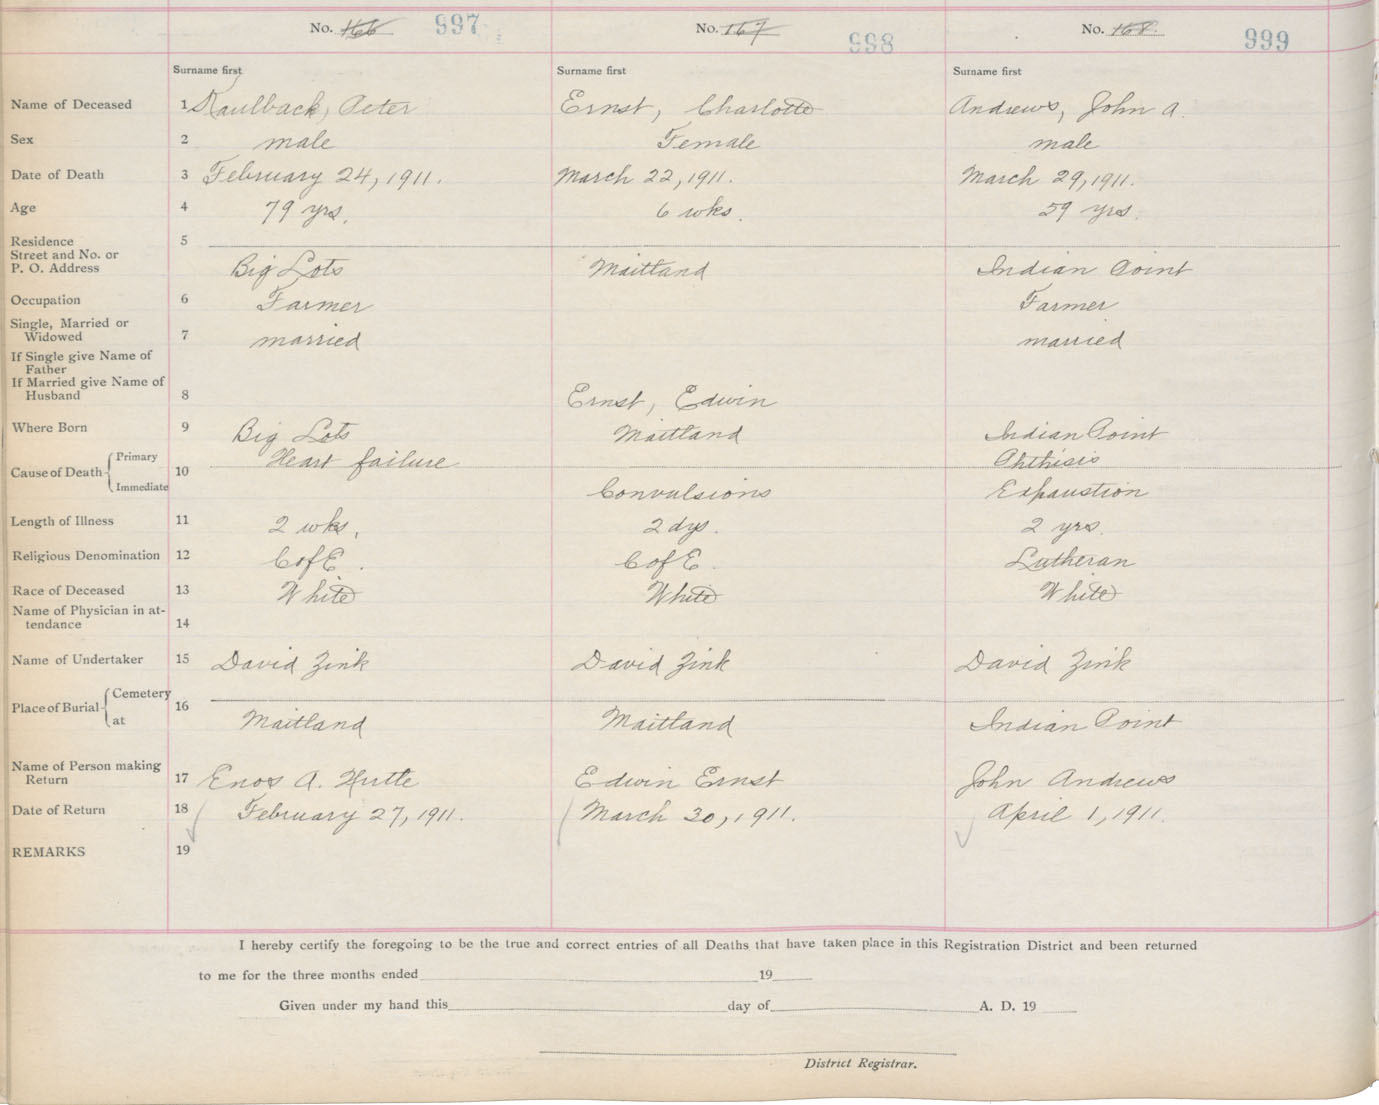 No. 166 997 No. 167 998 No. 168. 999
Surname first Surname first Surname first
Name of Deceased 1 Kaulback, Peter Ernst, Charlotte Andrews, John A.
Sex 2 male Female male
Date of Death 3 February 24, 1911. March 22, 1911. March 29, 1911.
Age 4 79 yrs. 6 wks. 59 yrs.
Residence 5
Street and No. or
P. O. Address Big Lots Maitland Indian Point
Occupation 6 Farmer Farmer
Single, Married or
Widowed 7 married married
If Single give Name of
Father
If Married give Name of
Husband 8 Ernst, Edwin
Where Born 9 Big Lots Maitland Indian Point
Cause of Death 10 Primary Heart failure Phthisis
Immediate Convulsions Exhaustion
Length of Illness 11 2 wks. 2 dys. 2 yrs.
Religious Denomination 12 C of E. C of E. Lutheran
Race of Deceased 13 White White White
Name of Physician in at-
tendance 14
Name of Undertaker 15 David Zink David Zink David Zink
Place of Burial 16 Cemetery
at Maitland Maitland Indian Point
Name of Person making
Return 17 Enos A. Edwin Ernst John Andrews
Date of Return 18 February 27, 1911. March 30, 1911. April 1, 1911.
REMARKS 19
I hereby certify the foregoing to be the true and correct entries of all Deaths that have taken place in this Registration District and been returned
to me for the three months ended 19
Given under my hand this day of A. D. 19
District Registrar.